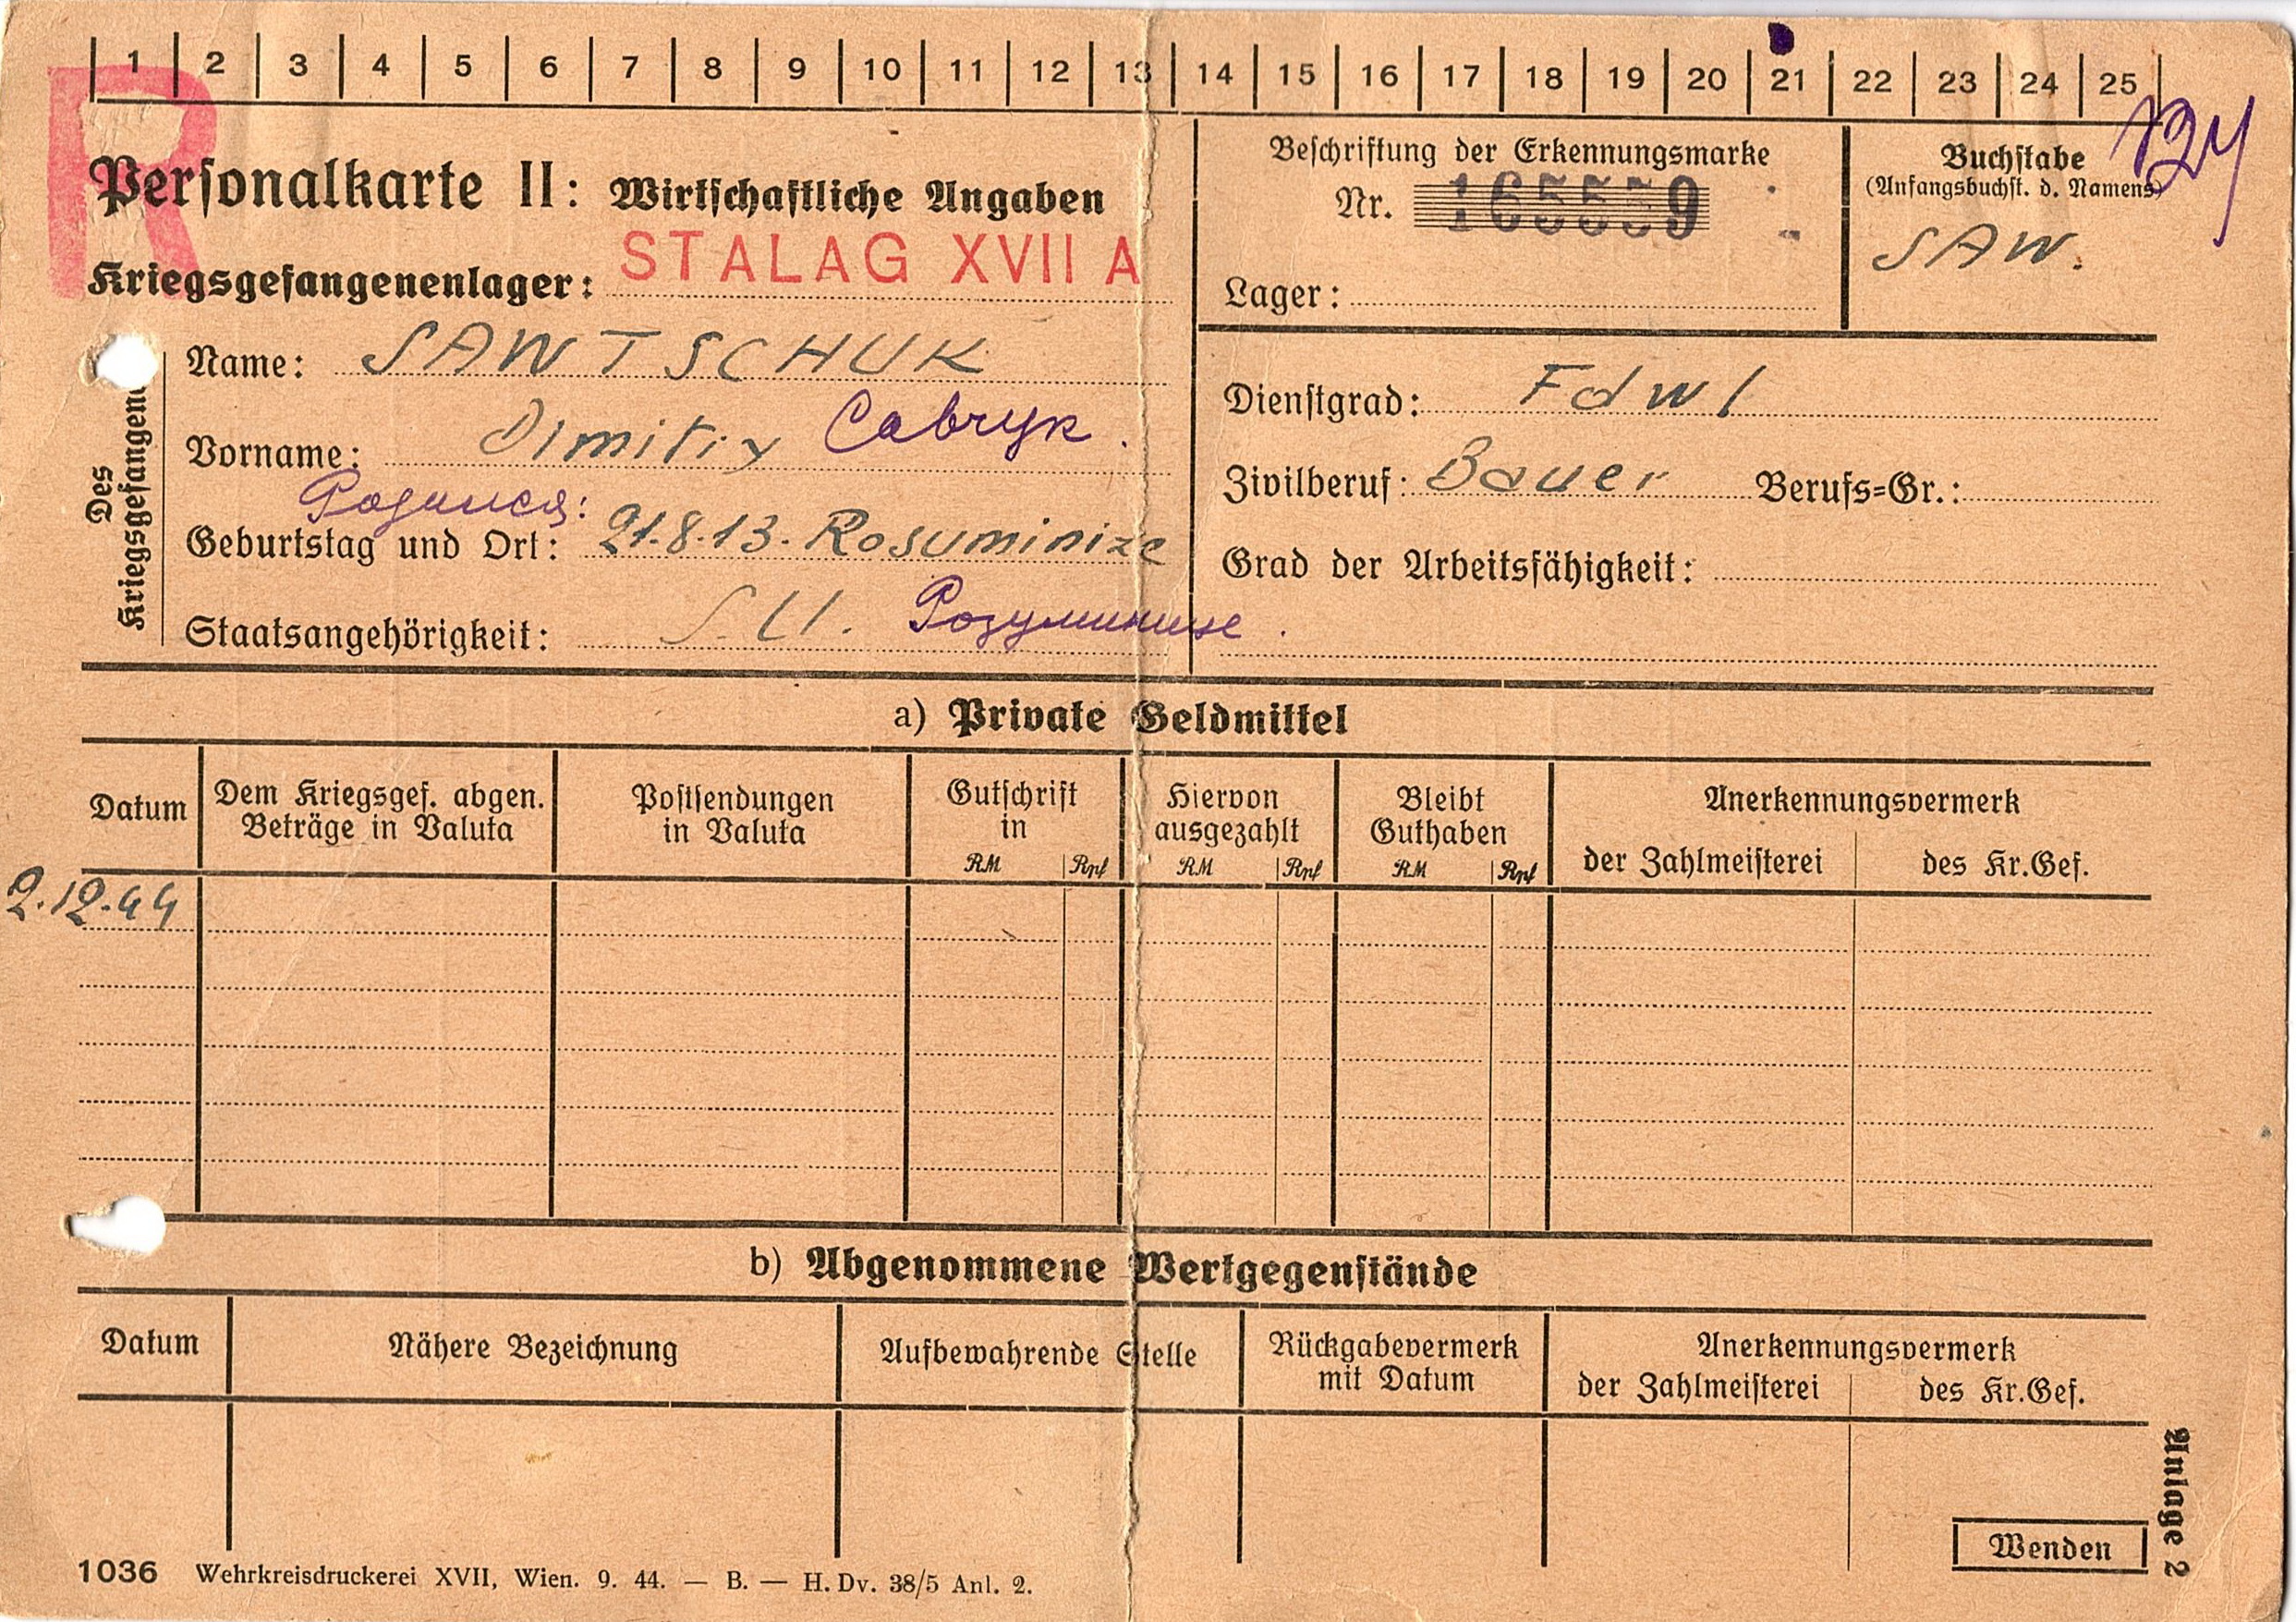 1 2 3 4 5 6 7 8 9 10 11 12 13 14 15 16 17 18 19 20 21 22 23 24 25
R
Personalkarte II: Wirtschaftliche Angaben
Kriegsgefangenenlager: STALAG XVII A
Beschriftung der Erkennungsmarke
Nr. 165559
Lager:
Buchstabe
(Anfangsbuchst. d. Namens)
SAW.
Des Kriegsgefangenen
Name: SAWTSCHUK
Vorname: Dimitrix Савчук.
Родился:
Geburtstag und Ort: 21.8.13. Rosuminize
Staatsangehörigkeit: S.U. Розуминице.
Dienstgrad: Fdwl
Zivilberuf: Bauer Berufs=Gr.:
Grad der Arbeitsfähigkeit:
a) Private Geldmittel
Datum
Dem Kriegsgef. abgen.
Beträge in Valuta
Postsendungen
in Valuta
Gutschrift
in
RM Rpf
Hiervon
ausgezahlt
RM Rpf
Bleibt
Guthaben
RM Rpf
Anerkennungsvermerk
der Zahlmeisterei des Kr.Gef.
2.12.44
b) Abgenommene Wertgegenstände
Datum
Nähere Bezeichnung
Aufbewahrende Stelle
Rückgabevermerk
mit Datum
Anerkennungsvermerk
der Zahlmeisterei des Kr.Gef.
Wenden
Anlage 2
1036 Wehrkreisdruckerei XVII, Wien. 9. 44. — B. — H. Dv. 38/5 Anl. 2.